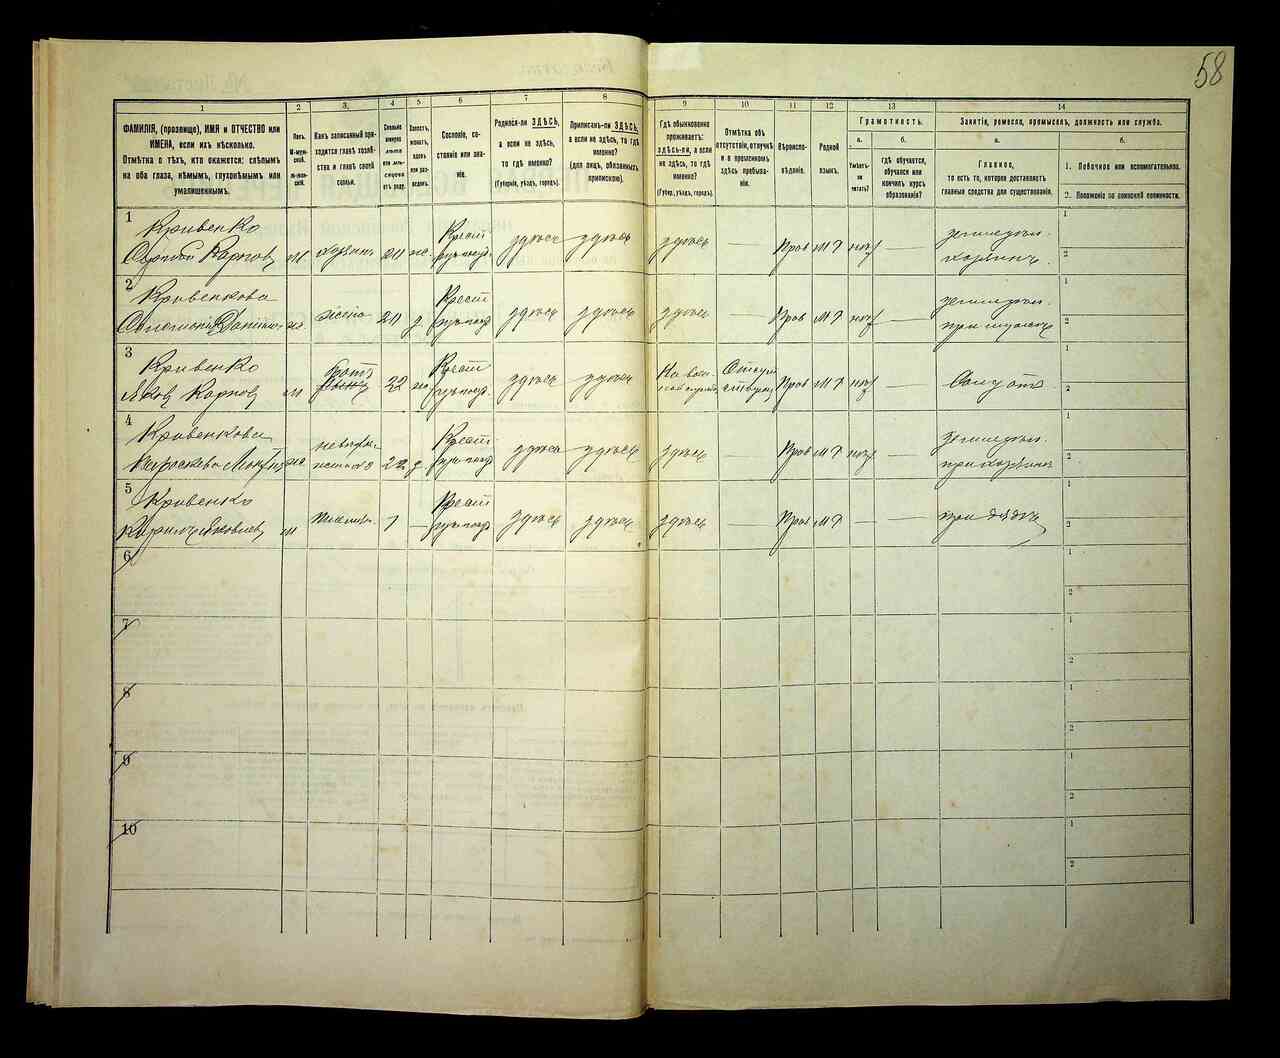 58
1
2
3.
4
5.
6
7
8
9
10
11
12
13
14
ФАМИЛІЯ, (прозвище), ИМЯ и ОТЧЕСТВО или
ИМЕНА, если ихъ нѣсколько.
Отмѣтка о тѣхъ, кто окажется: слѣпымъ
на оба глаза, нѣмымъ, глухонѣмымъ или
умалишеннымъ.
Полъ.
М-муж-
ской.
Ж-жен-
скій.
Какъ записанный при-
ходится главѣ хозяй-
ства и главѣ своей
семьи.
Сколько
минуло
лѣтъ
или мѣ-
сяцевъ
отъ роду.
Холостъ,
женатъ,
вдовъ
или раз-
веденъ.
Сословіе, со-
стояніе или зва-
ніе.
Родился-ли ЗДѢСЬ,
а если не здѣсь,
то гдѣ именно?
(Губернія, уѣздъ, городъ).
Приписанъ-ли ЗДѢСЬ,
а если не здѣсь, то гдѣ
именно?
(для лицъ, обязанныхъ
припискою).
Гдѣ обыкновенно
проживаетъ:
здѣсь-ли, а если
не здѣсь, то гдѣ
именно?
(Губер., уѣздъ, городъ).
Отмѣтка объ
отсутствіи, отлучкѣ
и о временномъ
здѣсь пребыва-
ніи.
Вѣроиспо-
вѣданіе.
Родной
языкъ.
Грамотность.
а.
б.
Умѣетъ-
ли
читать?
ГДѢ обучается,
обучался или
кончилъ курсъ
образованія?
Занятіе, ремесло, промыселъ, должность или служба.
а.
б.
Главное,
то есть то, которое доставляетъ
главныя средства для существованія.
1. Побочное или вспомогательное.
2. Положеніе по воинской повинности.
1
Кривенко
Сергѣй Карповъ
м
хозяинъ
ж.
Крест
здѣсь
здѣсь
здѣсь
—
Прав
М Р
нѣт
—
земледѣл.
хозяинъ
1
2
2
Кривенкова
ж
жена
Крест
здѣсь
здѣсь
здѣсь
—
Прав
М Р
нѣт
—
земледѣл.
при мужѣ
1
2
3
Кривенко
Яковъ Карповъ
м
братъ
22
ж
Крест
здѣсь
здѣсь
Прав
М Р
нѣт
—
Солдатъ
1
2
4
Кривенкова
ж
невѣстка
22
Крест
здѣсь
здѣсь
здѣсь
—
Прав
М Р
нѣт
—
земледѣл.
при хозяинѣ
1
2
5
Кривенко
Кирилъ Яковлев
м
племян.
1
—
Крест
здѣсь
здѣсь
здѣсь
—
Прав
М Р
—
—
при дядѣ
1
2
6
1
2
7
1
2
8
1
2
9
1
2
10
1
2